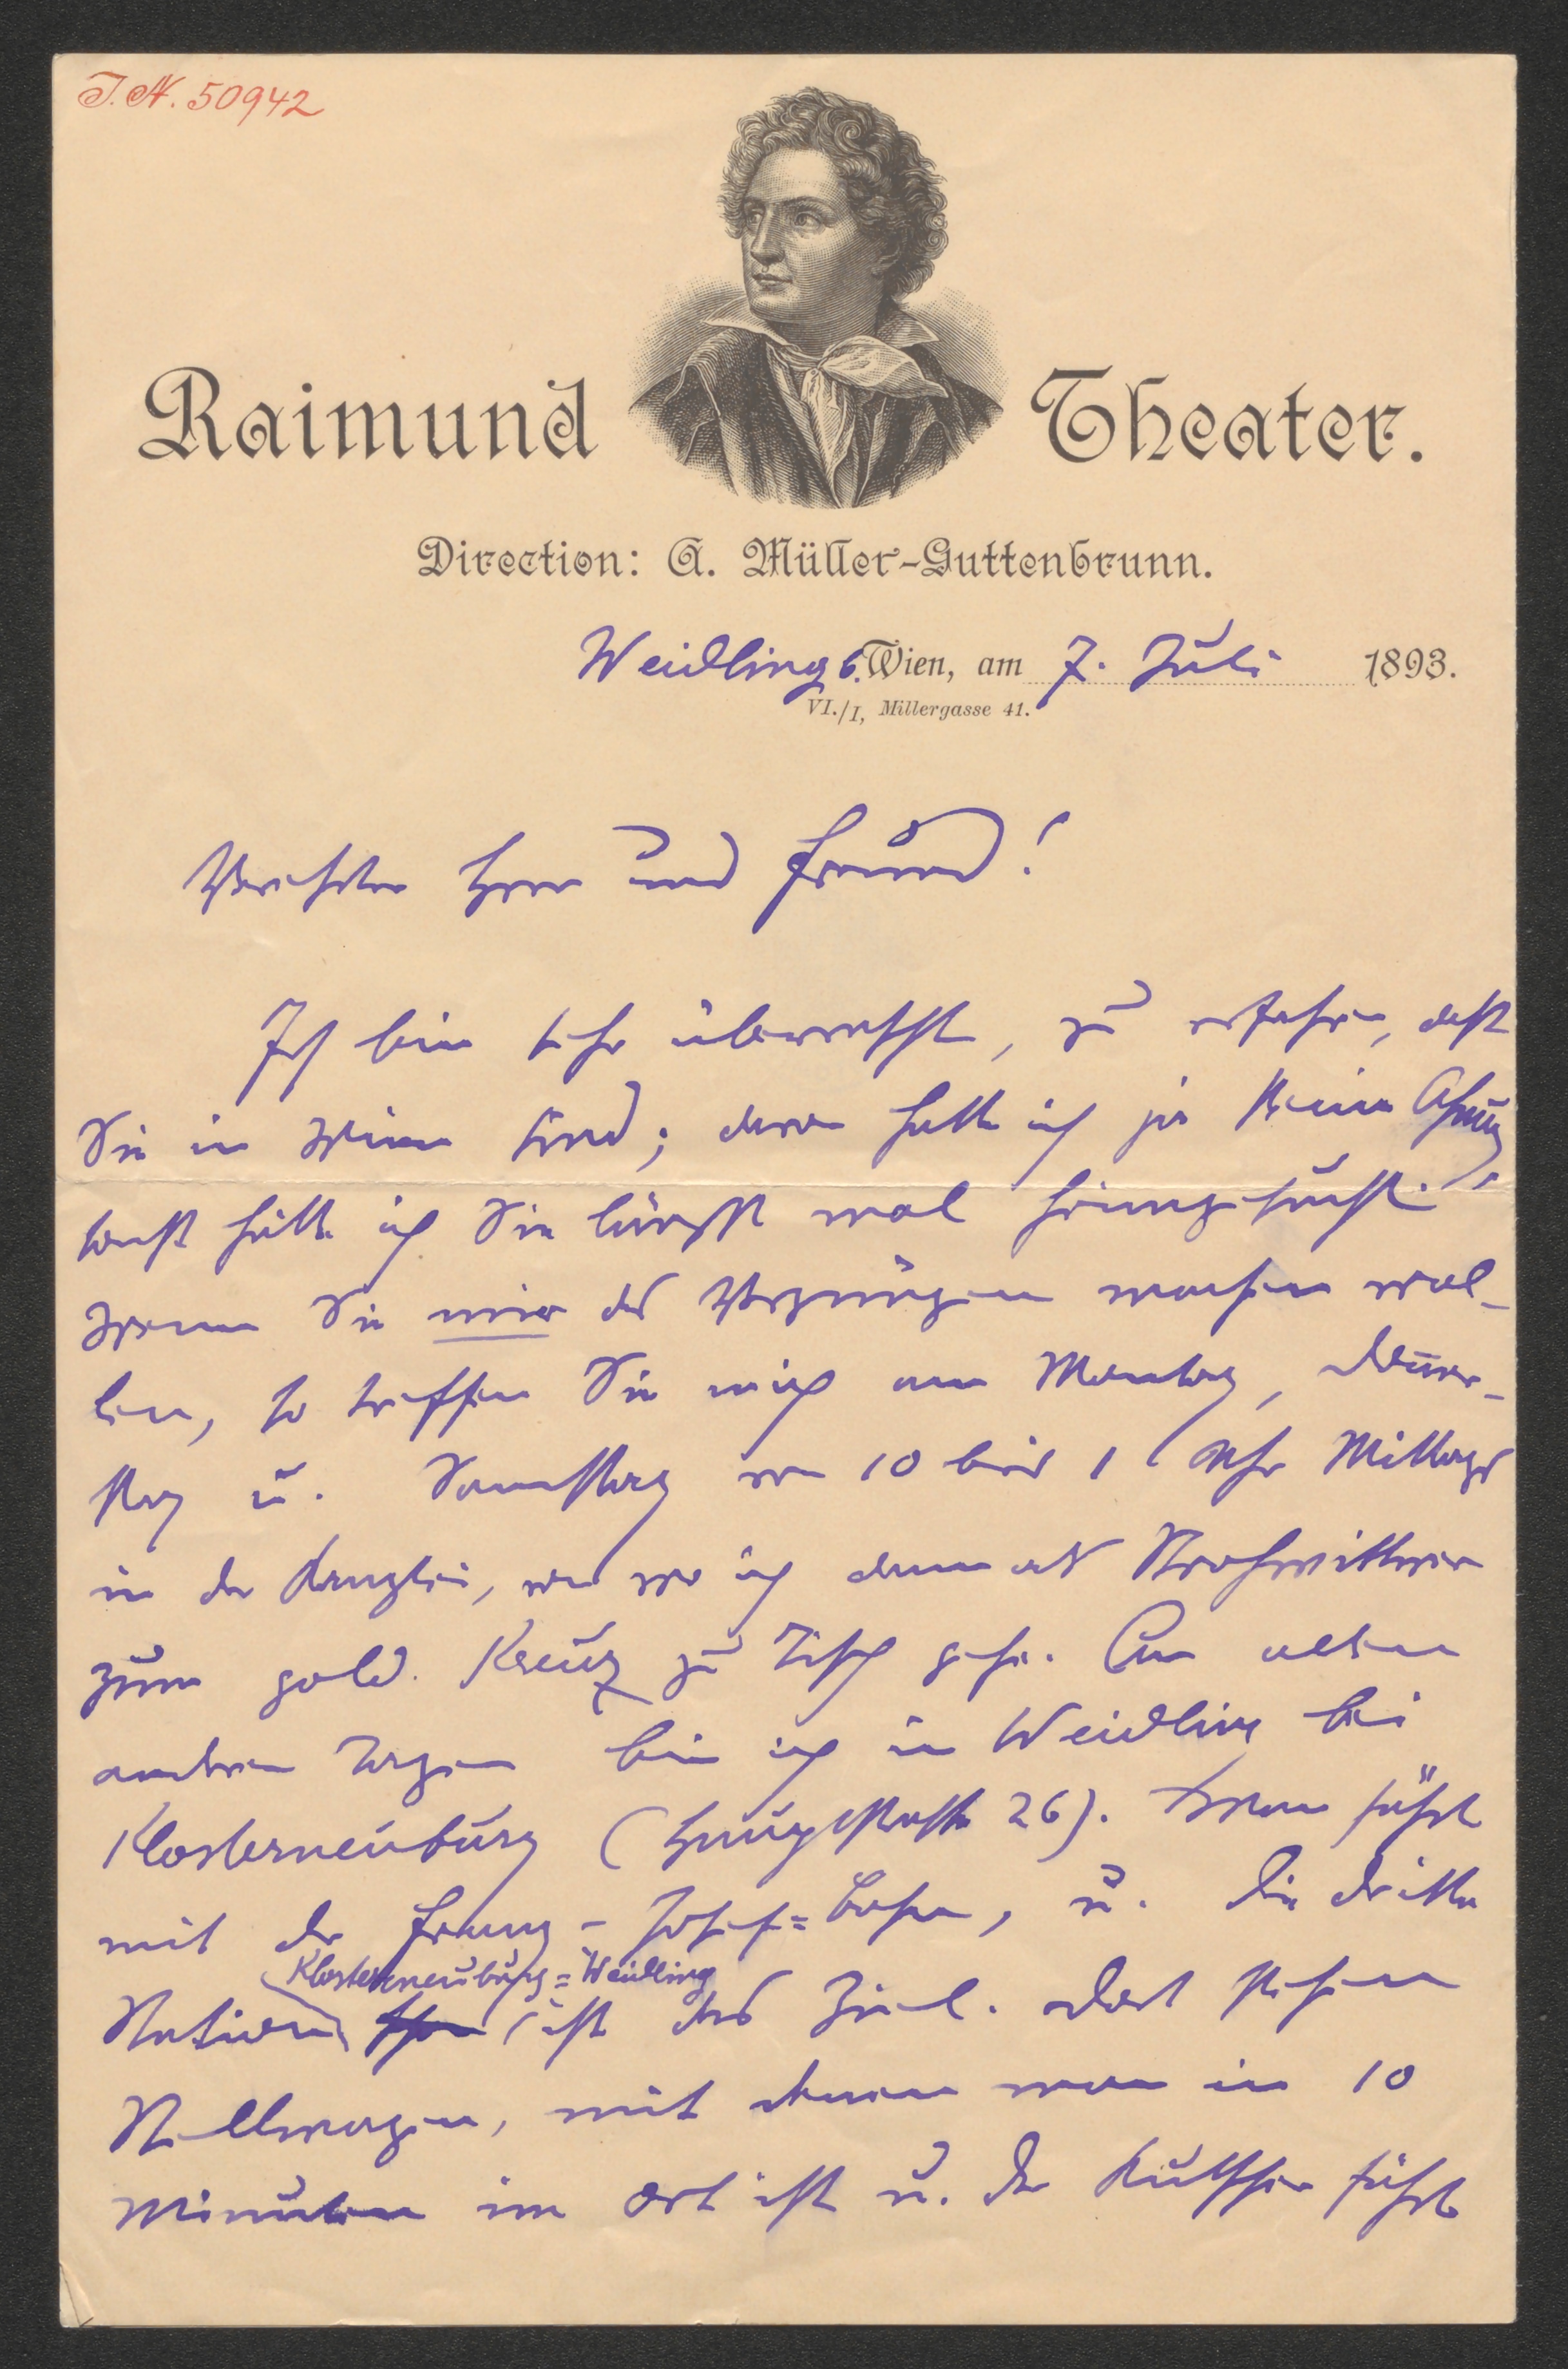 I. N. 50942
Raimund Theater.
Direction: A. Müller-Guttenbrunn.
Weidling b. Wien, am 7. Juli 1893.
VI./I, Millergasse 41.
Verehrter Herr und Freund!
Ich bin sehr überrascht, zu erfahren, daß
Sie in Wien sind; davon hatte ich ja keine Ahnung,
sonst hätte ich Sie längst mal heimgesucht.
Wenn Sie mir das Vergnügen machen wol-
len, so treffen Sie mich am Montag, Donners-
tag u. Samstag von 10 bis 1 Uhr Mittags
in der Kanzlei, von wo ich dann als Strohwittwer
zum gold. Kreuz zu Tisch gehe. An allen
andern Tagen bin ich in Weidling bei
Klosterneuburg (Hauptstraße 26). Man fährt
mit der Franz-Josef=Bahn, u. die dritte
Klosterneuburg=Weidling
Station ist das Ziel. Dort stehen
Stellwagen, mit denen man in 10
Minuten im Ort ist u. der Kutscher führt